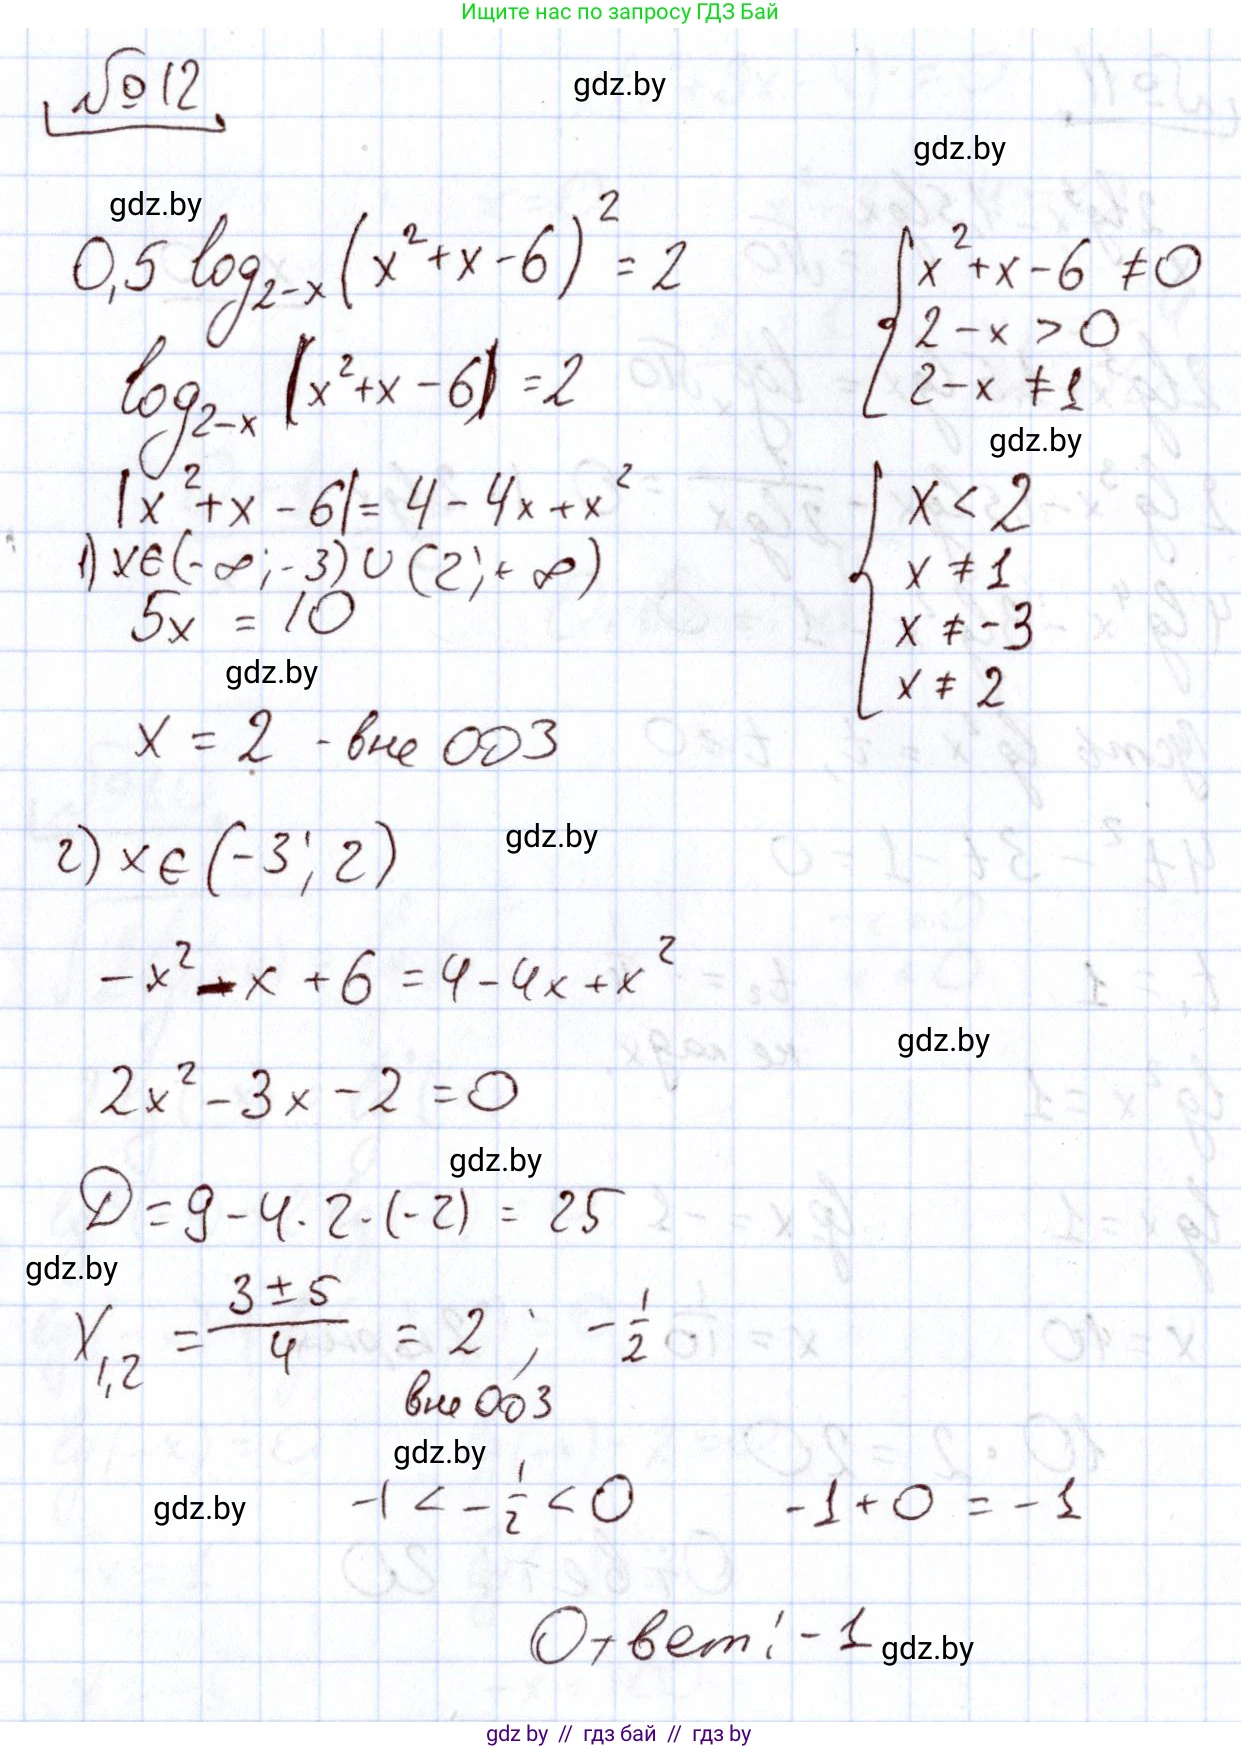 Ищите нас по запросу ГДЗ Бай
№ 12
gdz.by
gdz.by
gdz.by
0,5 log_{2-x} (x² + x - 6)² = 2
{ x² + x - 6 ≠ 0
2 - x > 0
2 - x ≠ 1
log_{2-x} |x² + x - 6| = 2
gdz.by
|x² + x - 6| = 4 - 4x + x²
{ x < 2
x ≠ 1
x ≠ -3
x ≠ 2
1) x ∈ (-∞; -3) ∪ (2; +∞)
5x = 10
gdz.by
x = 2 - вне ОДЗ
gdz.by
2) x ∈ (-3; 2)
-x² - x + 6 = 4 - 4x + x²
gdz.by
2x² - 3x - 2 = 0
gdz.by
D = 9 - 4 · 2 · (-2) = 25
gdz.by
x_{1,2} = (3 ± 5)/4 = 2 ; -1/2
вне ОДЗ
gdz.by
gdz.by
-1 < -1/2 < 0 -1 + 0 = -1
Ответ: -1
gdz.by
gdz by // гдз бай // гдз by